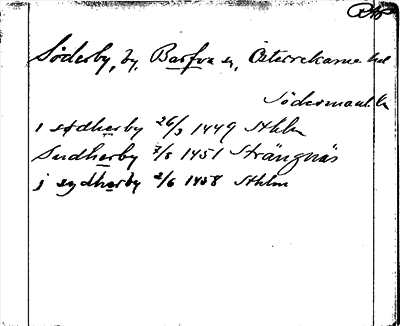 Söderby, by, Barfva sn, Österrekarne hd
Södermanl. l.
i södherby 26/3 1449 Sthlm
Sudherby 7/5 1451 Strängnäs
j sydherby 2/6 1458 Sthlm